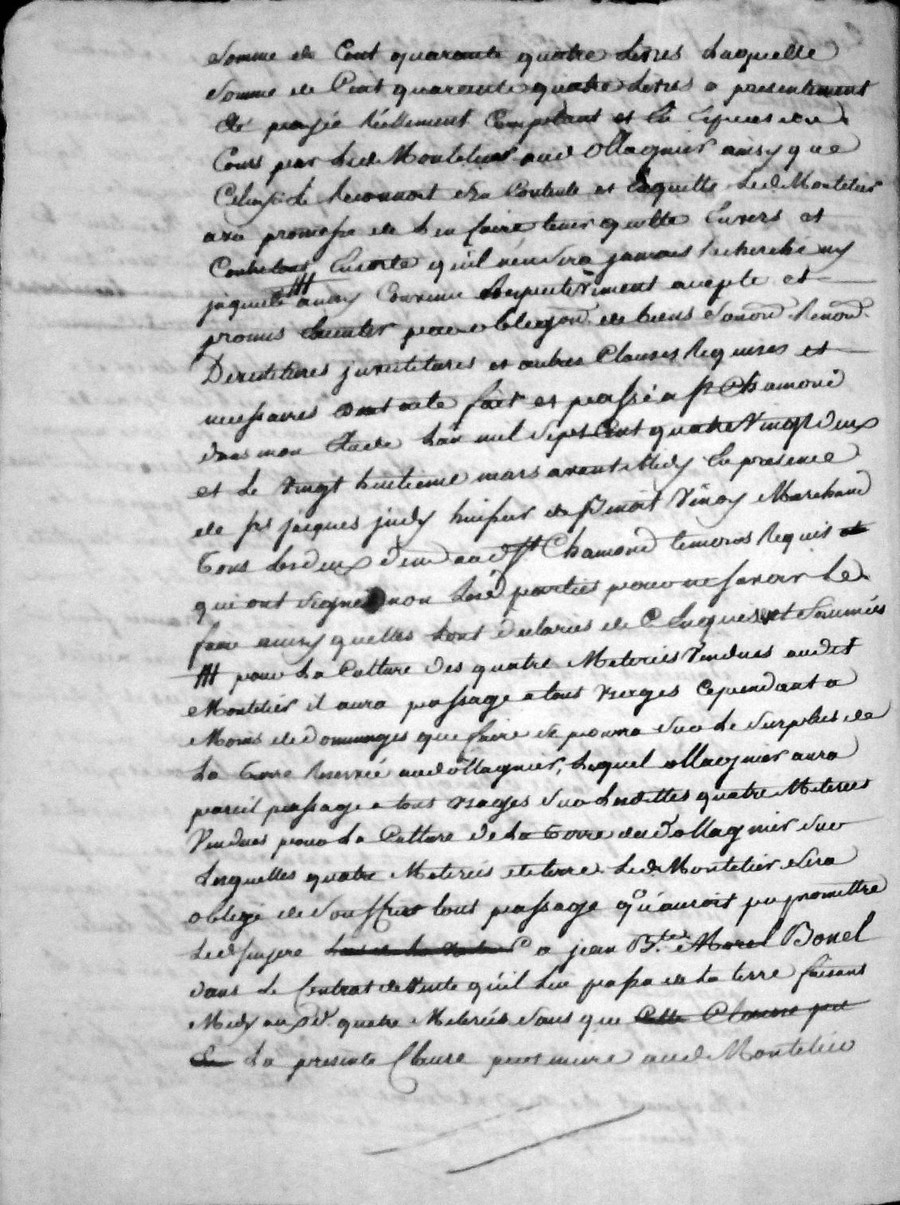 somme de Cent quarante quatre livres Laquelle
somme de Cent quarante quatre livres a presentement
été payée réellement Comptant et En Especes de
Cours par Led Montelier aud Ollagnier ainsy que
Celuisi Le Reconnoit En Contente et Enquitte Led Montelier
avec promesse de L'en faire tenir quitte Envers et
Contre tous Ensorte qu'il n'en sera jamais Recherché ny
inquieté # ainsy Convenu Respectivement accepté et
promis par obligaon de biens Renon
Devetitures investitures et autres Clauses Requises et
necessaires dont acte fait et passé a St Chamond
dans mon Etude L'an mil sept Cent quatre Vingt deux
et Le vingt huitieme mars avant Midy En presence
de Srs jacques judy huissier de Benoit Vinoy Marchand
Tous Les deux dud St Chamond temoins Requis
qui ont signé non Les parties pour ne savoir Le
faire ainsy quelles L'ont declarées de Ce Enquises et Sommées
# pour La Culture des quatre Meterées Vendues audit
Montelier il aura passage a tous usages Cependant a
Moins de dommages que faire se pourra sur Le Surplus de
La terre Reservée aud ollagnier, Lequel ollagnier aura
pareil passage a tous usages sur Lesdittes quatre Meterées
Vendues pour La Culture de La terre dud ollagnier sur
Lesquelles quatre Meterées de terre Led Montelier sera
obligé de souffrir tous passage qu'auroit pu promettre
Led a jean Bte Morel Bonel
dans Le Contrat de Vente qu'il Lui passa de La terre faisant
Midy aux d. quatre Meterées sans que Cette Clause
La presente Clause puisse nuire aud Montelier